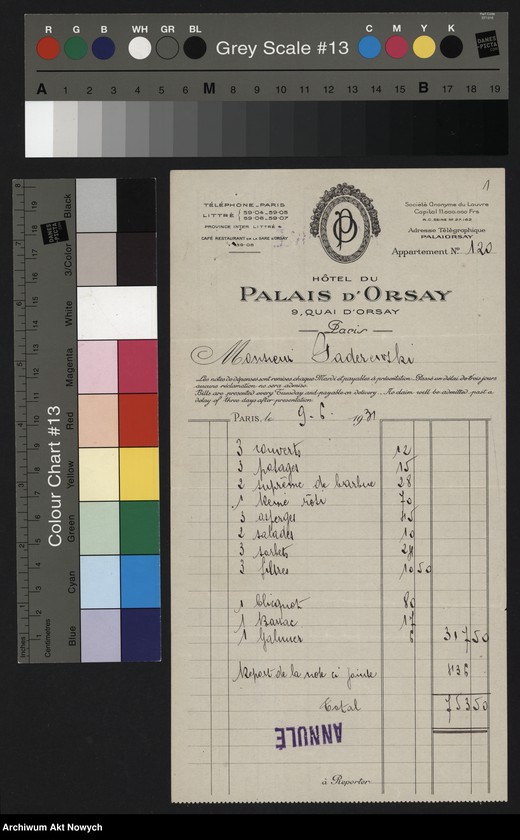 R G B WH GR BL Grey Scale #13 C M Y K
DANES PICTA .COM
A 1 2 3 4 5 6 M 8 9 10 11 12 13 14 15 B 17 18 19
Colour Chart #13
Blue Cyan Green Yellow Red Magenta White 3/Color Black
Inches
Centimetres
1
TÉLÉPHONE_PARIS
LITTRÉ 59-04_59-05
59-06_59-07
PROVINCE INTER LITTRÉ
CAFÉ RESTAURANT DE LA GARE D'ORSAY
Société Anonyme du Louvre
Capital 11.000.000 Frs
Adresse Télégraphique
PALAIORSAY
Appartement No 120
HÔTEL DU
PALAIS D'ORSAY
9, QUAI D'ORSAY
Paris
Monsieur Paderewski
Les notes de dépenses sont remises chaque Mardi et payables à présentation. Passé un délai de trois jours
aucune réclamation ne sera admise.
Bills are presented every Tuesday and payable on delivery. No claim will be admitted past a
delay of three days after presentation.
PARIS, le 9-6- 1931
3 couverts 12
3 potages 15
2 suprême de barbue 28
1 Reine rôtie 70
3 asperges 45
2 salades 10
3 sorbets 24
3 filtres 10 50
1 Clicquot 80
1 Barsac 17
1 Galmier 6 317 50
Report de la note ci jointe 436
Total 753 50
ANNULÉ
à Reporter
Archiwum Akt Nowych